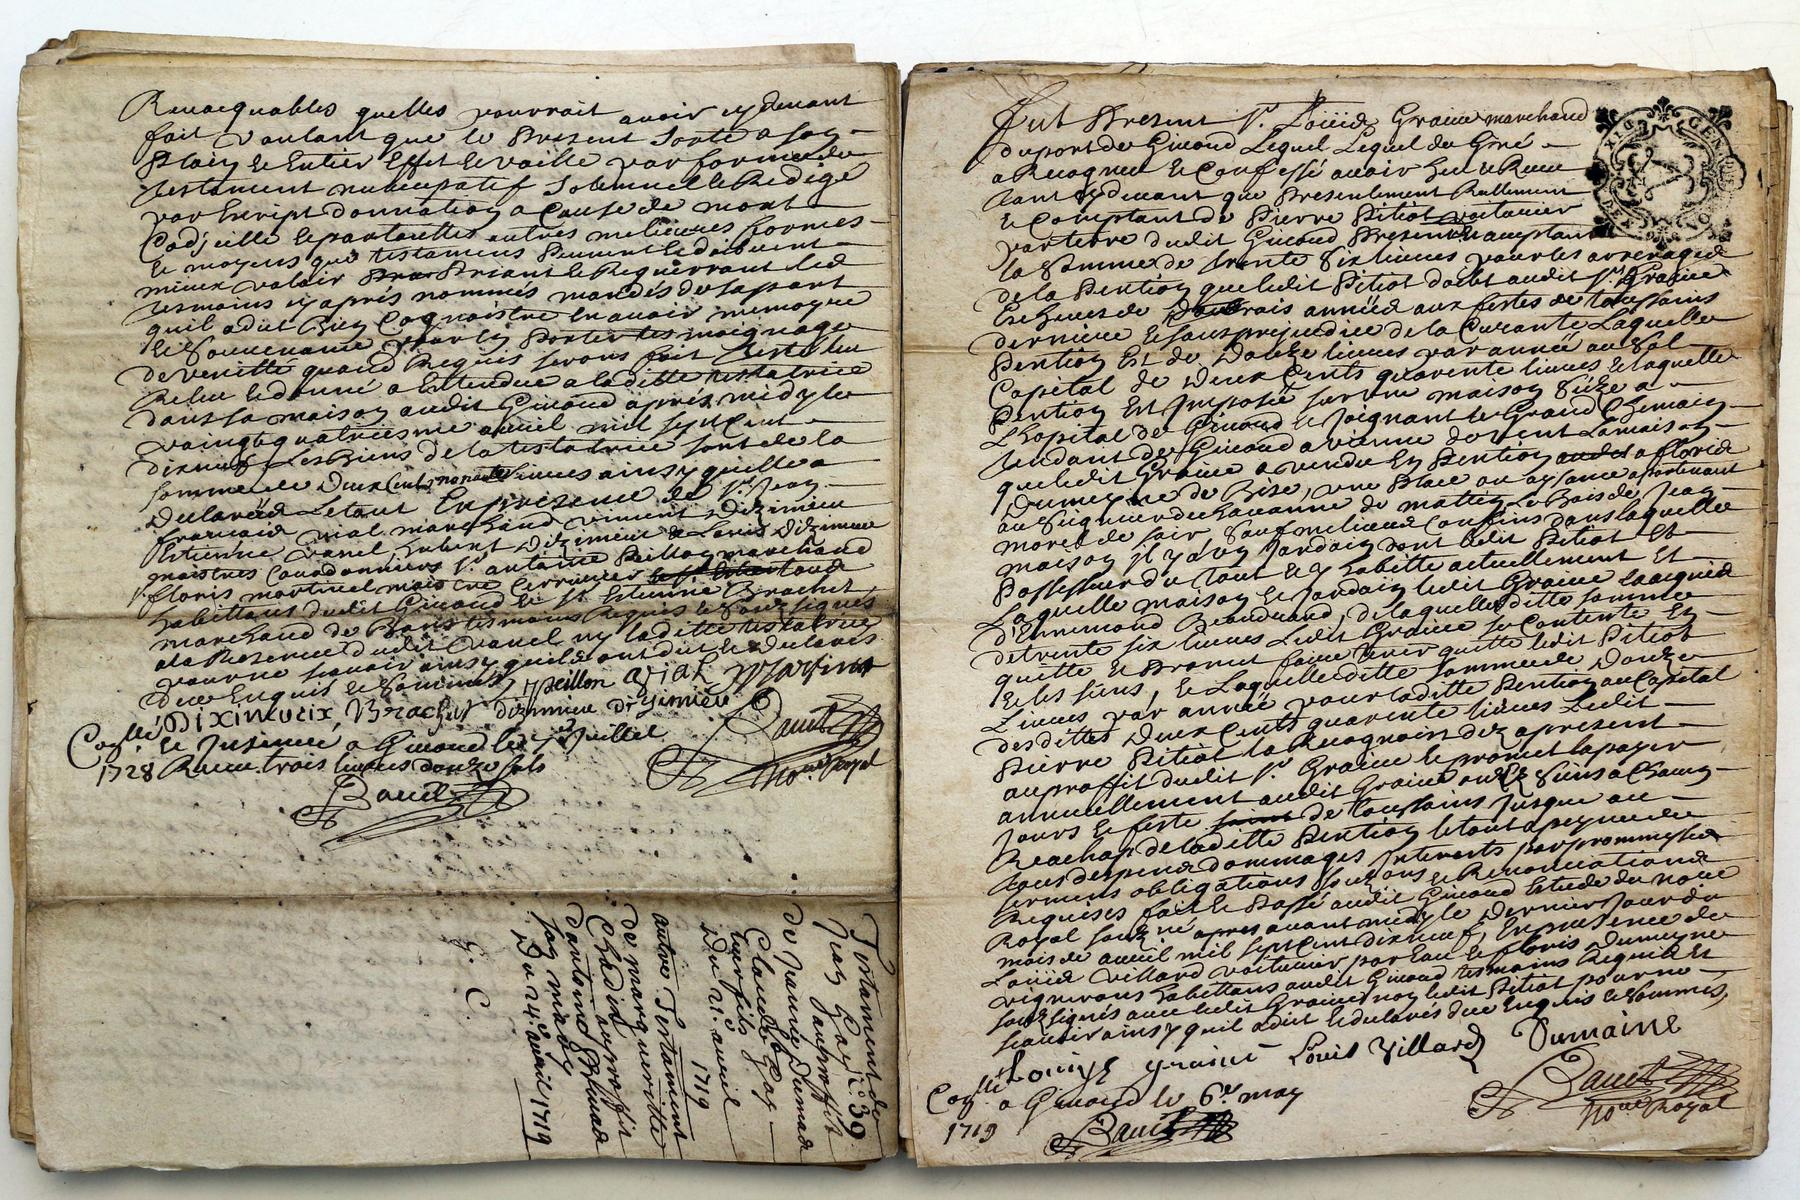 Remarquables quelles pourroit avoir cy devant
fait voulant que le present sorte a son
plain et entier effet et vaille par forme de
testament nuncupatif solemnel et Redigé
par Escript donnation a Cause de mort
Codicille et par touttes autres melieures formes
et moyens que testamens peuvent et doibvent
mieux valoir priant et Requerrant les
tesmoins cy aprés nommés mandés de sa part
quil a dit Bien Cognoistre en avoir memoyre
et souvenance pour en porter tesmoignage
de verité quand Requis seront fait
Releu et donné a Entendre a laditte testatrice
dans sa maison audit Givord apres midy le
vaingt quatriesme avril mil sept cent
dixneuf Les Biens de la testatrice sont de la
somme de Deux Cent nonante Livres ainsy quelle a
Declaré Le tout En presence de Sr. Jean
francois vial marchand vincent Dizimieu
Estienne Vanel Dizimieu Louis Dizimieu
maistres Courdonniers Sr. antoine Peillon marchand
floris martinel maistre serrurier tous
habittans dudit Givord et Sr. Estienne Brachet
marchand de tesmoins Requis et soussignés
a la Reserve dudit Vanel ny laditte testatrice
pour ne scavoir ainsy quils ont dit et declarés
de ce Enquis et sommés peillon vial Martinel
Brachet dizimieu Dizimieu
Conllé. et Insinué a Givord le Juillet
1728 Receu trois livres douze sols
Bauet
Bauet
Nore Royal
Testament de
Jean Gay
au proffit
de Janne Dumad
Claude Gay
leur fils
Du 21. avril
1719
autre Testament
de margueritte
Chadin au proffit
dantoine
son mary
Du 24. avril 1719
N: 39
G. C.
Fut Present Sr. Loüis Graine marchand
du port de Givord Lequel Lequel de Gré
a Recogneu et Confessé avoir heu et Receu
tant cy devant que Presentement Reellement
et Comptant de Pierre Pitiot voiturier
par terre dudit Givord Present et acceptant
la somme de trente six livres pour les arrerages
de la Pention que ledit Pitiot doibt audit Sr. Graine
Escheues de trois années aux festes de toussains
derniere et sans prejudice de la Courante Laquelle
Pention Est de Douze livres par année au sol
Capital de Deux Cents quarente livres et laquelle
Pention Est Imposée sur une maison size a
L'hopital de Givord et Joignant le Grand Chemain
tendant de Givord a vienne do vent La maison
que ledit Graine a vendu En Pention a floris
Dumeyne de Bise, une place ou aysance apartenant
au seigneur de havanne de mattin Le Bois de Jean
morel de soir sauf melieurs Confins dans laquelle
maison il y a un Jardain dont ledit Pitiot Est
Possesseur du tout et y habitte actuellement Et
Laquelle maison et Jardain ledit Graine a acquis
d'Ennemond Beaudrand, de laquelle ditte somme
de trente six livres Ledit Graine se Contente En
quitte et Promet faire tenir quitte ledit Pitiot
et les siens, et Laquelle ditte somme de Douze
Livres par année pour laditte Pention au Capital
desdittes Deux Cents quarente livres Ledit
Pierre Pitiot la Recognoist dez apresent
au proffit dudit Sr. Graine et promet la payer
annuellement audit Graine ou es siens a Chacun
Jours et feste de toussains Jusque au
Reachapt de laditte Pention le tout a peyne de
tous despens dommages Interests par promesses
serments obligations soumissions et Renonciations
Requises fait et Passé audit Givord Estude du notre
Royal soussigné apres avant midy le Dernier Jour du
mois de avril mil sept cent dixneuf, En presence de
Louis villard voiturier par Eau et floris Dumeyne
vigneron habittans audit Givord tesmoins Requis Et
soussignés avec ledit Graine non ledit Pitiot pour ne
scavoir ainsy quil a dit et declarés de ce Enquis et sommés,
Louiys graine Louis Villard Dumaine
Conllé.
a Givord le 6e. may
1719
Bauet
Bauet
Nore Royal
GEN DIX DEN